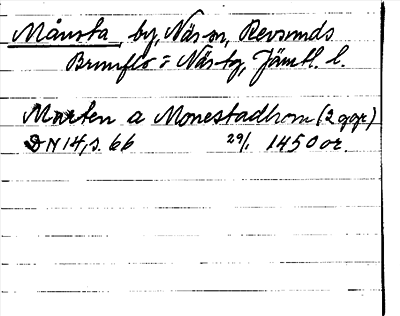 Månsta, by, Näs sn, Revsunds
Brunflo o Näs tg, Jämtl. l.
Marten a Monestadhom (2 ggr)
DN 14, s. 66 29/1 1450 or.